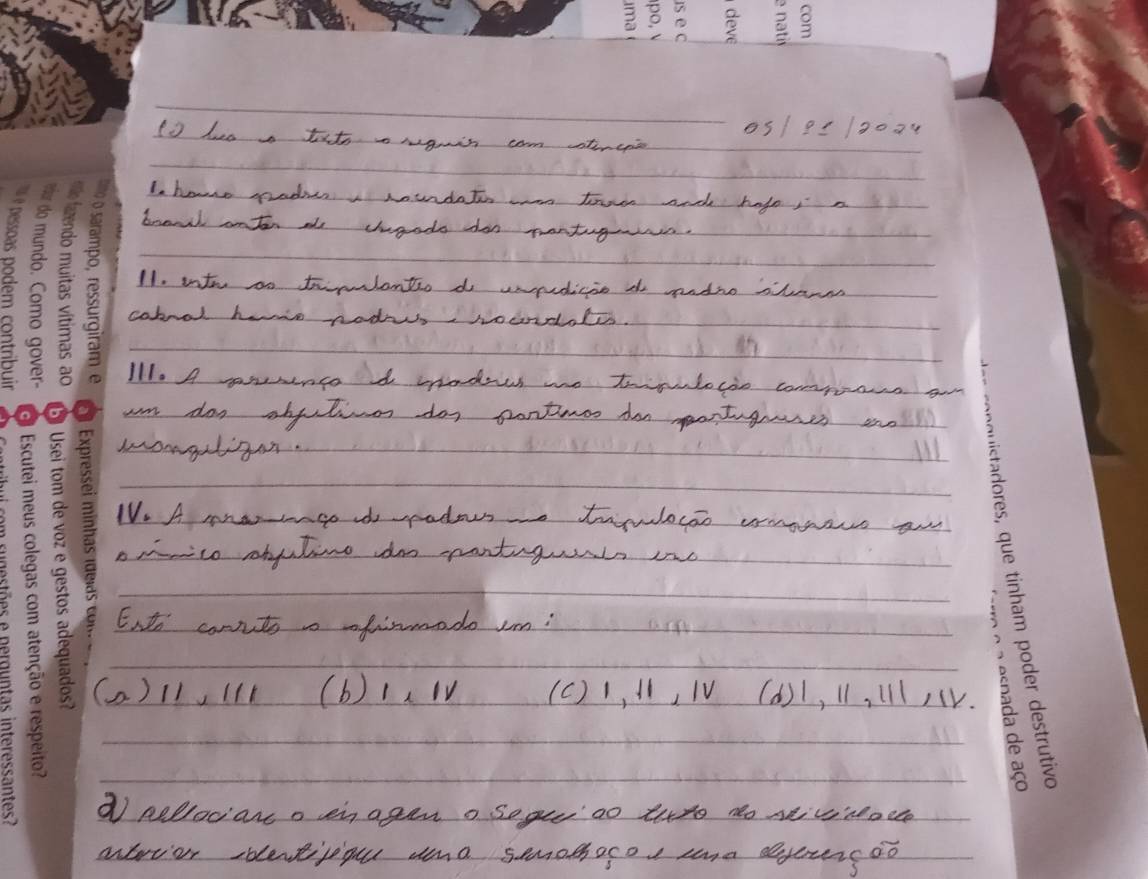 com
e nati
deve
s e c
po, v
uma
05/01/2024
1) leia o texto a seguir com atenção
I. havia padres e sacerdotes nas terras onde hoje é o
brasil antes da chegada dos portugueses.
II. entre os tripulantes da expedição de pedro álvares
cabral havia padres e sacerdotes.
III. A presença de padres na tripulação comprova que
um dos objetivos dos portugueses era
evangelizar.
IV. A presença de padres na tripulação comprova que
o único objetivo dos portugueses era
Está correto o afirmado em:
(a) II, III (b) I e IV (c) I, II, IV (d) I, II, III, IV.
2) rellocione o imagem o segui ao texto da atividade
anterior identifique uma semelhaça e uma diferenção
o sarampo, ressurgiram e
fazendo muitas vítimas ao
do mundo. Como gover-
e pessoas podem contribuir
a Expressei minhas ideias com
b Usei tom de voz e gestos adequados?
c Escutei meus colegas com atenção e respeito?
com sugestões e perguntas interessantes?
conquistadores, que tinham poder destrutivo
espada de aço